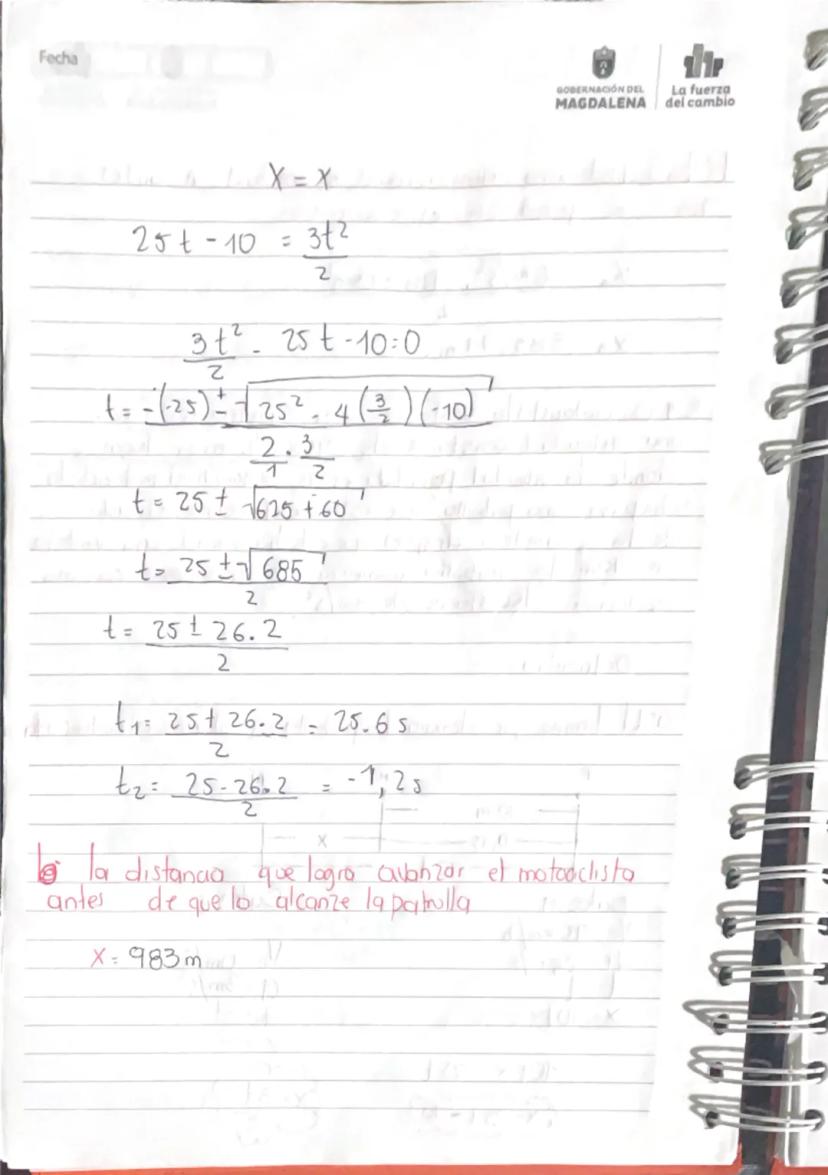 Fecha
GOBERNACIÓN DEL
MAGDALENA
La fuerza
del cambio
X = x
25t - 10 = 3t²/2
3t²/2 - 25t - 10 = 0
t = -(-25) ± √25² - 4(3/2)(-10) / 2/1 · 3/2
t = 25 ± √625 + 60
t = 25 ± √685 / 2
t = 25 ± 26.2 / 2
t1 = 25 + 26.2 / 2 = 25.6 s
t2 = 25 - 26.2 / 2 = -1,2s
la distancia que logra avanzar el motociclista
antes de que lo alcanze la patrulla
X = 983m